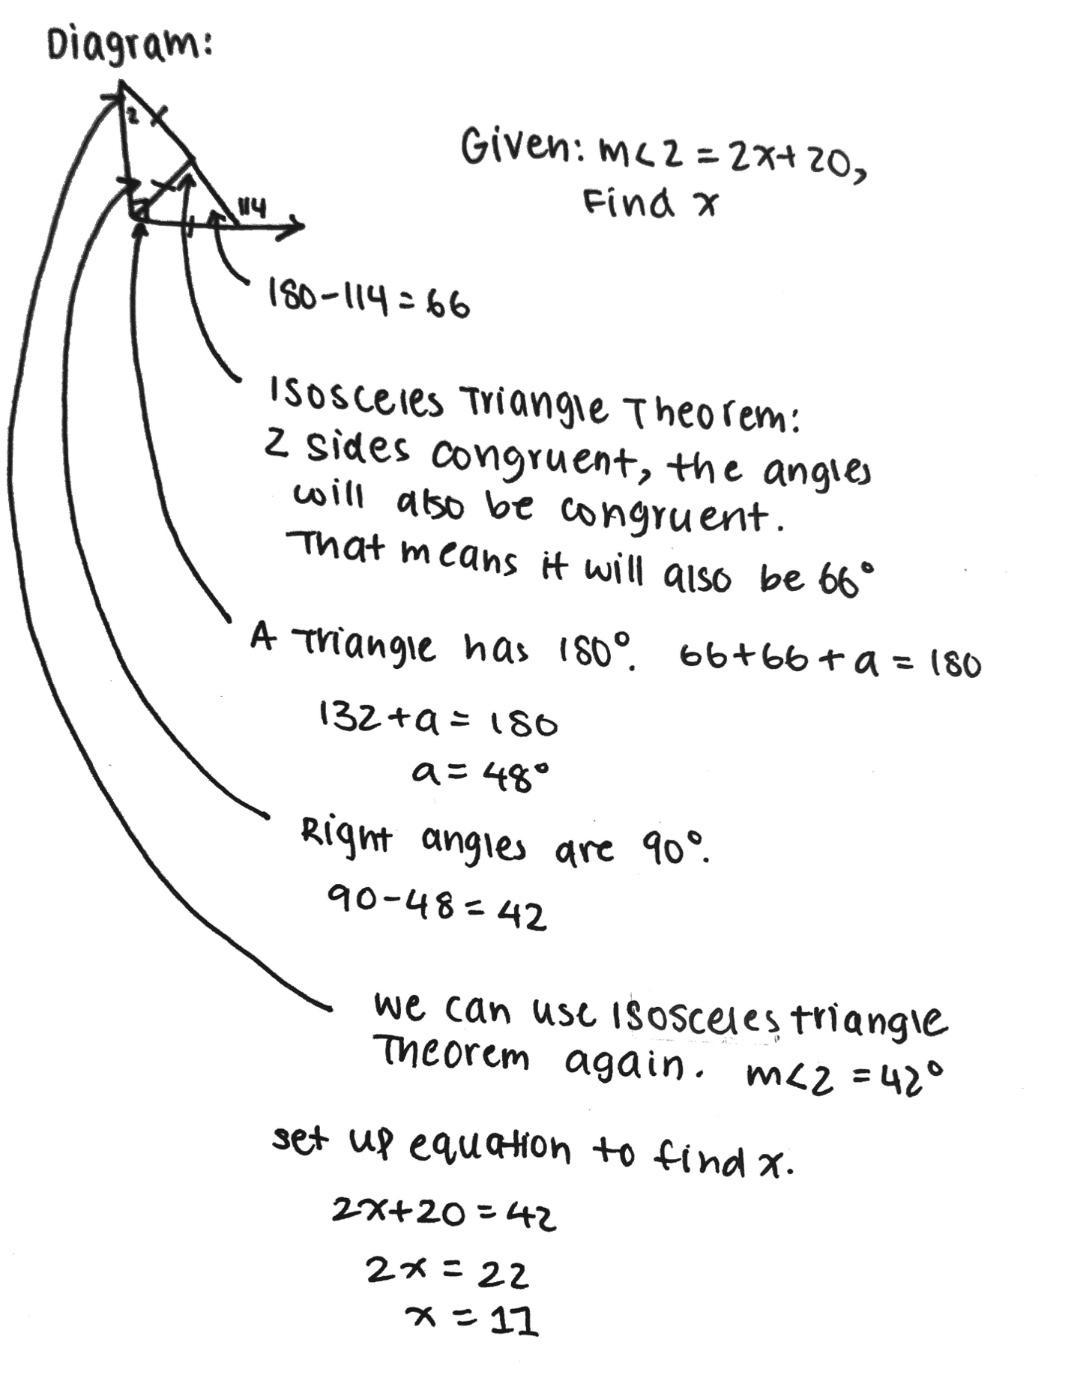 Diagram:
2
114
Given: m<2 = 2x+20,
Find x
180-114 = 66
Isosceles Triangle Theorem:
2 sides congruent, the angles
will also be congruent.
That means it will also be 66°
A triangle has 180°. 66+66+a = 180
132+a = 180
a = 48°
Right angles are 90°.
90-48 = 42
we can use isosceles triangle
Theorem again. m<2 = 42°
set up equation to find x.
2x+20 = 42
2x = 22
x = 11